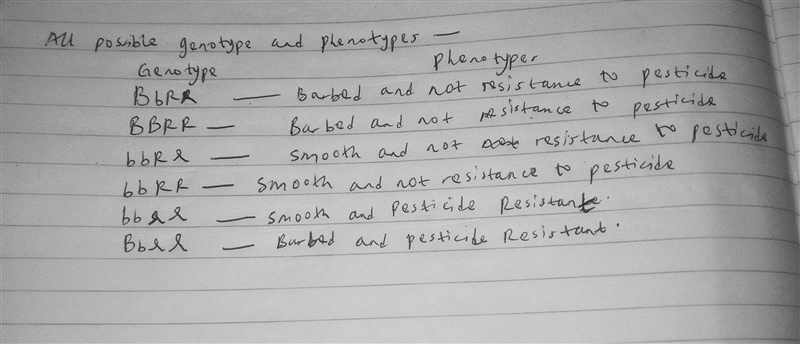 All possible genotype and phenotypes —
Genotype Phenotypes
BbRr — Barbed and not resistance to pesticide
BBRR — Barbed and not resistance to pesticide
bbRr — smooth and not resistance to pesticide
bbRR — smooth and not resistance to pesticide
bbrr — smooth and Pesticide Resistante.
Bbrr — Barbed and pesticide Resistant.